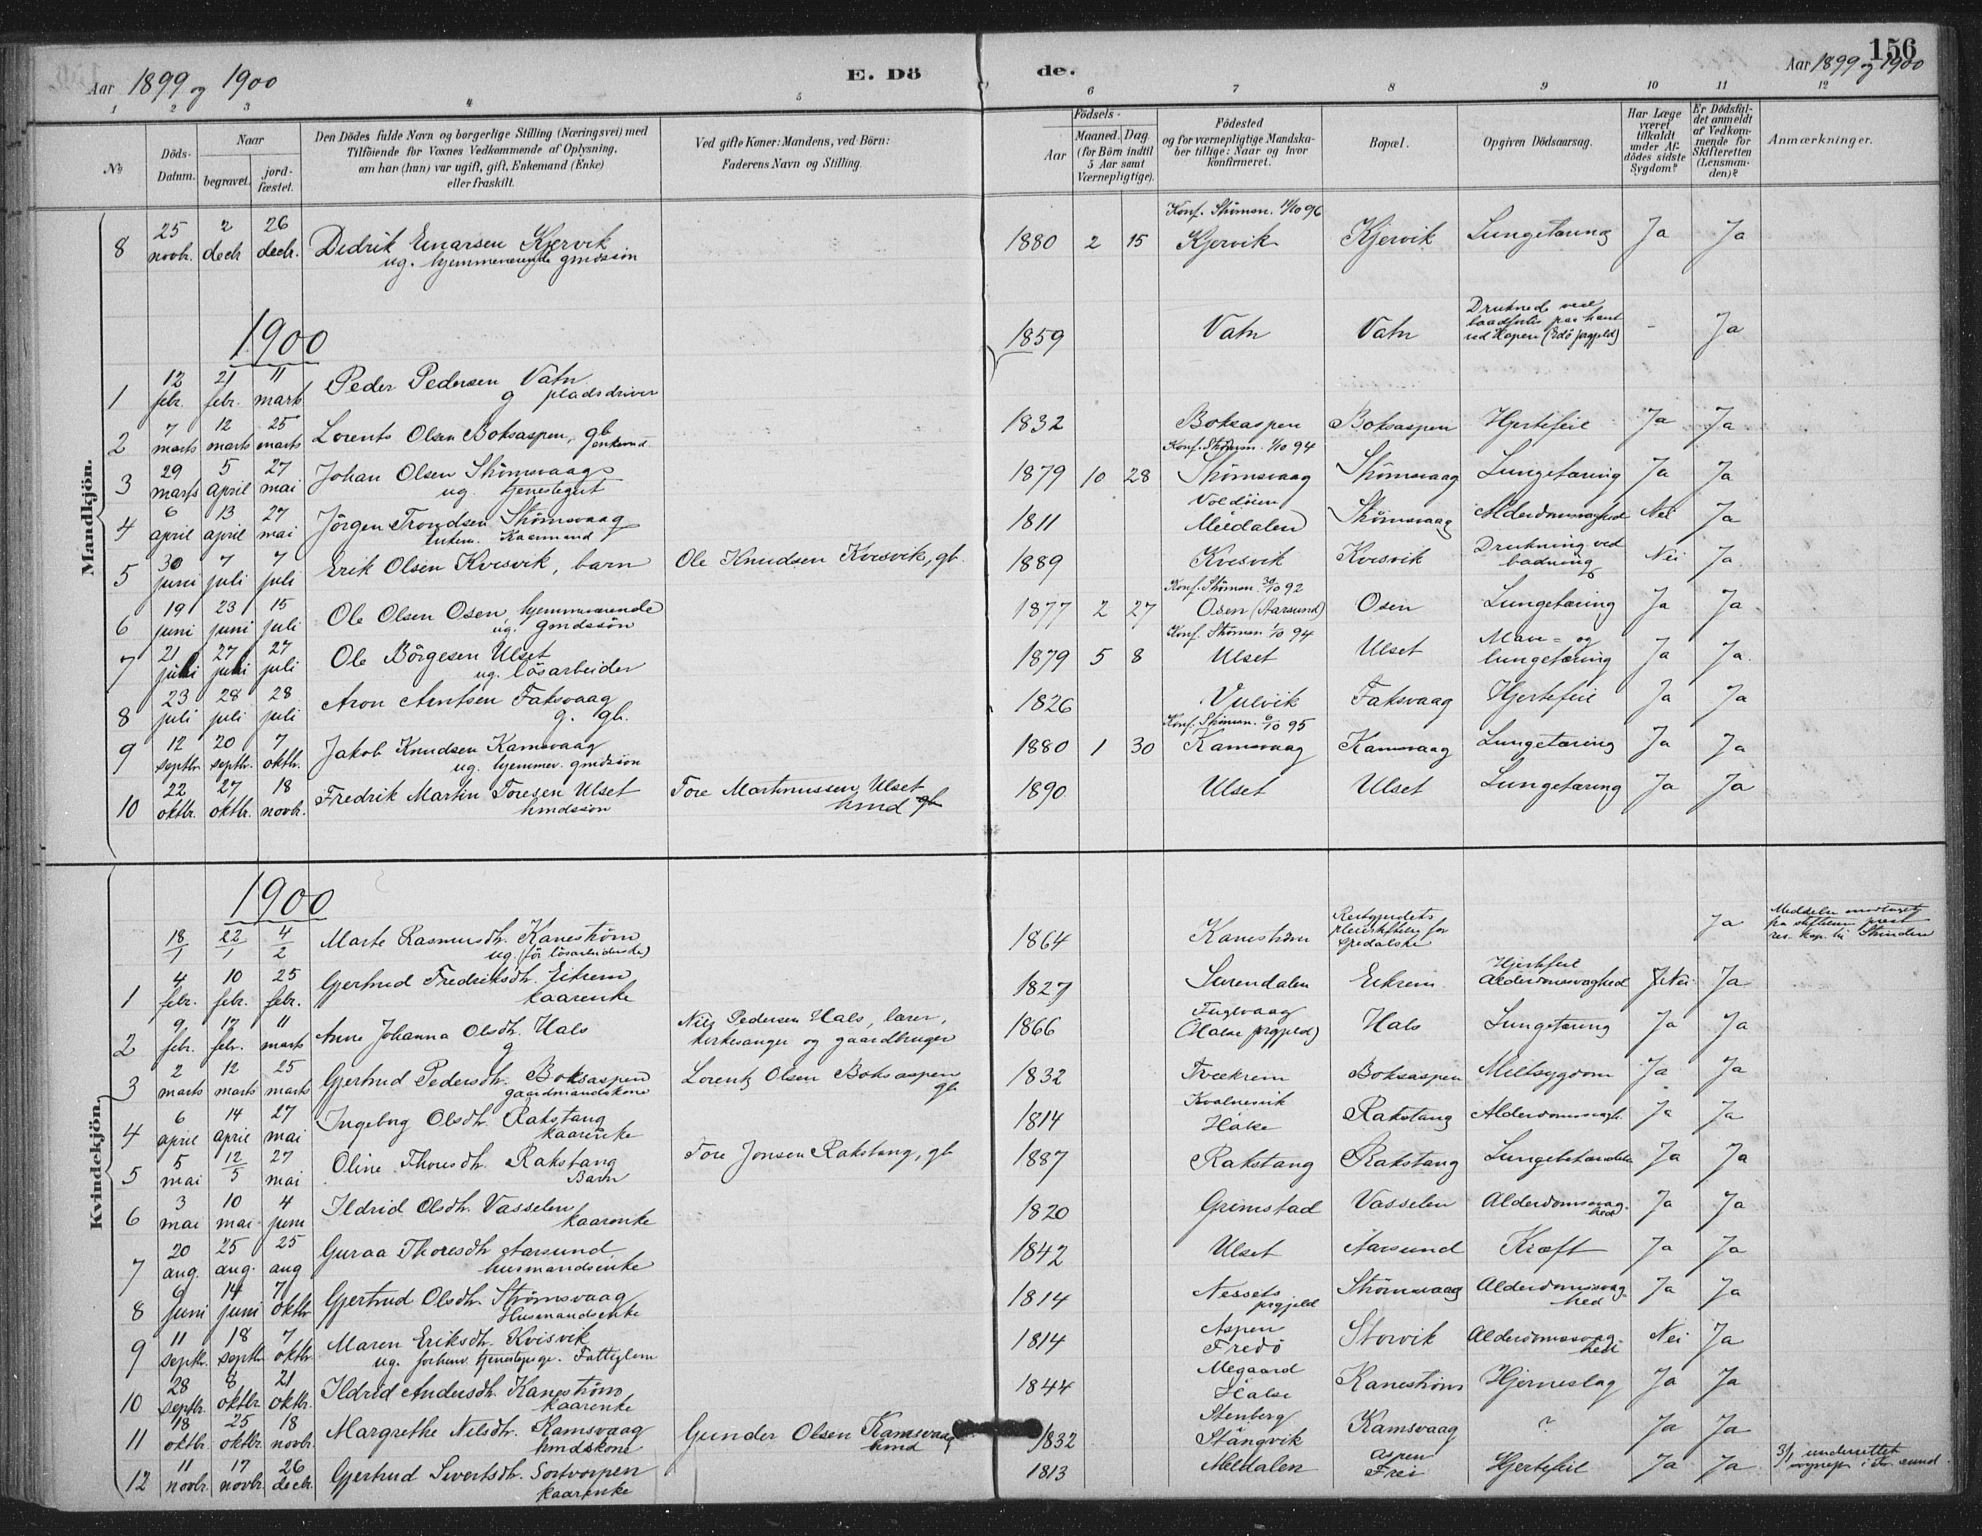 Aar 1899 og 1900
E. Dö
de.
156
Aar 1899 og 1900
1 2 3 4 5 6 7 8 9 10 11 12
No
Döds-Datum.
Naar
begravet.
jord-fæstet.
Den Dödes fulde Navn og borgerlige Stilling (Næringsvei) med
Tilföiende for Voxnes Vedkommende af Oplysning,
om han (hun) var ugift, gift, Enkemand (Enke)
eller fraskilt.
Ved gifte Koner: Mandens, ved Börn:
Faderens Navn og Stilling.
Födsels-
Aar
Maaned. Dag.
(for Börn indtil
5 Aar samt
Værnepligtige).
Födested
og for værnepligtige Mandska-
ber tillige: Naar og hvor
konfirmeret.
Bopæl.
Opgiven Dödsaarsag.
Har Læge
været
tilkaldt
under Af-
dödes sidste
Sygdom?
Er Dödsfal-
det anmeldt
af Vedkom-
mende for
Skifteretten
(Lensman-
den)?
Anmærkninger.
Mandkjön.
8 25 novbr. 2 decbr 26 decbr. Didrik Einarsen Kjervik 1880 2 15 Konf. Strömsn. 11/10 96 Kjervik Kjervik Lungetæring Ja Ja
ug. hjemmeværende gmdssön
1900
1 12 febr. 21 febr. 11 marts Peder Pedersen Vatn 1859 Vatn Vatn Drukned ved baadforlis paa havet ved Hopen (Edö prgjeld) - Ja
g pladsdriver
2 7 marts 12 marts 25 marts Lorents Olsen Boksaspen, gb 1832 Boksaspen Boksaspen Hjertefeil Ja Ja
enkemd.
3 29 marts 5 april 27 mai Johan Olsen Strömsvaag 1879 10 28 Konf. Strömsn. 1/10 94 Strömsvaag Strömsvaag Lungetæring Ja Ja
ug. tjenestegut
4 6 april 13 april 27 mai Jörgen Trondsen Strömsvaag 1811 Meidalen Strömsvaag Alderdomssvaghed Nei Ja
Enkem. Kaarmand
5 30 juni 7 juli 7 juli Erik Olsen Kvisvik, barn Ole Knudsen Kvisvik, gb. 1889 Kvisvik Kvisvik Drukning ved badning Nei Ja
6 19 juni 23 juni 15 juli Ole Olsen Osen, hjemmeværende 1877 2 27 Konf. Strömsn. 30/10 92 Osen (Aarsund) Osen Lungetæring Ja Ja
ug. gmdssön
7 21 juli 27 juli 27 juli Ole Börgesen Ulset 1879 5 8 Konf. Strömsn 1/10 94 Ulset Ulset Mave- og lungetæring Ja Ja.
ug. lösarbeider
8 23 juli 28 juli 28 juli Aron Arntsen Faksvaag 1826 Vulvik Faksvaag Hjertefeil Ja Ja
g. gb.
9 12 septbr. 20 septbr. 7 oktbr. Jakob Knudsen Ramsvaag 1880 1 30 Konf. Strömsn. 6/10 95 Ramsvaag Ramsvaag Lungetæring Ja Ja
ug. hjemmev. gmdssön
10 22 oktbr. 27 oktbr. 18 novbr. Fredrik Martin Toresen Ulset Tore Martinussen Ulset 1890 Ulset Ulset Lungetæring Ja Ja
hmdssön hmd
Kvindekjön.
1900
18/1 22/1 4/2 Marte Rasmusdtr. Kaneström 1864 Kaneström pleiestiftelse for spedalske Ja Meddelse modtaget fra stiftelsens prest
ug. (för lösarbeiderske) res. kap. til
1 4 febr. 10 febr. 25 febr. Gjertrud Fredriksdtr. Eikrem 1827 Surendalen Eikrem Hjertefeil Alderdomssvaghed Nei Ja
kaarenke
2 9 febr. 17 febr. 11 marts Anne Johanna Olsdtr. Hals Nils Pedersen Hals, lærer, 1866 Fuglvaag (Halse prgjeld) Hals Lungetæring Ja Ja
g kirkesanger og gaardbruger
3 2 marts 12 marts 25 marts Gjertrud Pedersdtr. Boksaspen Lorents Olsen Boksaspen gb 1832 Tvækrem Boksaspen Miltsygdom Ja Ja
gaardmandskone
4 6 april 14 april 27 mai Ingeborg Olsdtr. Rakstang 1814 Kvalnesvik Halse Rakstang Alderdomssvagh. Ja Ja
kaarenke
5 5 mai 12/5 27 mai Oline Thoresdtr. Rakstang Tore Jonsen Rakstang, gb 1887 Rakstang Rakstang Lungebetændelse Ja Ja
Barn
6 3 mai 10 mai 4 juni Ildrid Olsdtr. Vasselen 1820 Grimstad Vasselen Alderdomssvaghed Ja Ja
kaarenke
7 20 aug. 25 aug. 25 aug Guraa Thoresdtr Aarsund 1842 Ulset Aarsund Kræft Ja Ja
husmandsenke
8 6 juni 14 juni 7 oktbr Gjertrud Olsdtr. Strömsvaag 1814 Nessets prgjeld Strömsvaag Alderdomssvaghed Ja Ja
Husmandsenke
9 11 septbr. 18 septbr 7 oktbr. Maren Eriksdtr. Kvisvik 1814 Aspen Fredö Storvik Alderdomssvaghed Nei Ja
ug. forhenv. tjenestepige. Fattiglem
10 28 septbr. 8 oktbr 21 oktbr. Ildrid Andersdtr. Kaneström 1844 Megaard Halse Kaneström Hjerneslag Ja Ja
kaarenke
11 18 oktbr. 25 oktbr. 18 novbr. Margrethe Nilsdtr. Ramsvaag Gunder Olsen Ramsvaag 1832 Stenberg Stangvik Ramsvaag ? Ja Ja
hmdskone hmd
12 11 novbr. 17 novbr 26 decbr. Gjertrud Sivertsdtr. Sortvorpen 1813 Meldalen Aspen Frei Hjertefeil Ja Ja 3/1 underrettet sognepr. i Kr.sund.
kaarenke